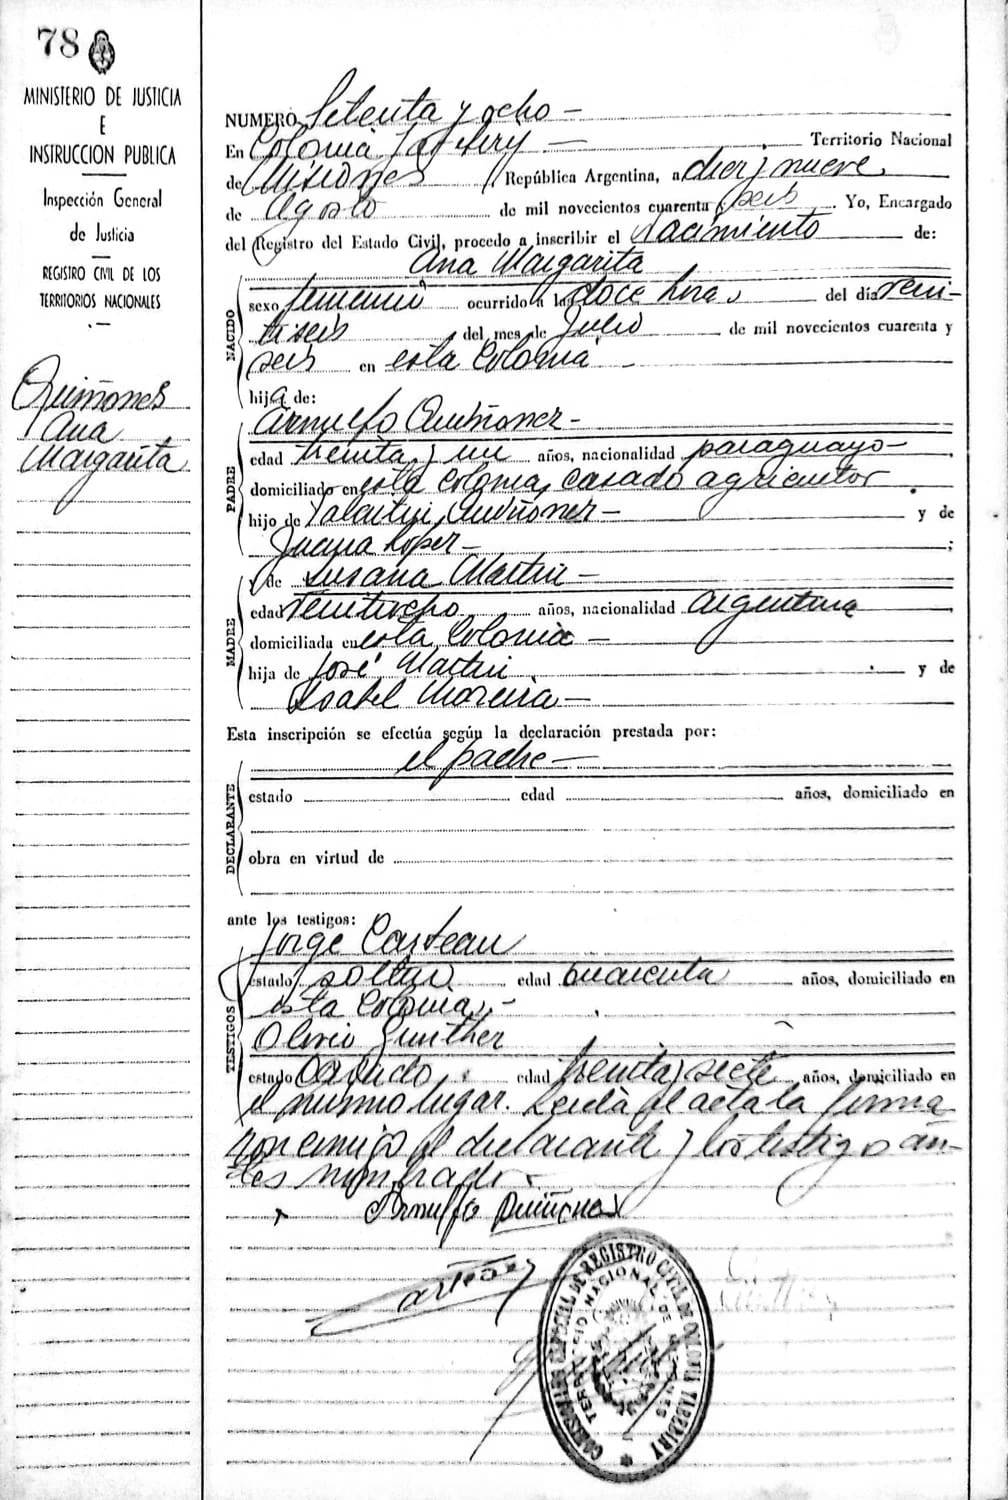 78
MINISTERIO DE JUSTICIA
E
INSTRUCCION PUBLICA
Inspección General
de Justicia
REGISTRO CIVIL DE LOS
TERRITORIOS NACIONALES
Quiñones
Ana
Margarita
NUMERO Setenta y ocho —
En Colonia — Territorio Nacional
de Misiones República Argentina, a diez y nueve
de Agosto de mil novecientos cuarenta y seis. Yo, Encargado
del Registro del Estado Civil, procedo a inscribir el Nacimiento de:
Ana Margarita
NACIDO
sexo femenino ocurrido a las doce horas del día vein-
tiseis del mes de Julio de mil novecientos cuarenta y
seis en esta Colonia —
hija de:
PADRE
Arnulfo Quiñonez —
edad treinta y un años, nacionalidad paraguayo —,
domiciliado en esta colonia, casado agricultor.
hijo de Quiñonez — y de
Juana Lopez — ;
MADRE
y de Susana Martin —
edad veintiocho años, nacionalidad argentina
domiciliada en esta Colonia —
hija de José Martin y de
Isabel Moreira —
Esta inscripción se efectúa según la declaración prestada por:
el padre —
DECLARANTE
estado edad años, domiciliado en
obra en virtud de
ante los testigos:
TESTIGOS
Jorge Casteau
estado soltero edad cuarenta años, domiciliado en
esta Colonia, —
Olivio Gunther
estado casado, edad treinta y siete años, domiciliado en
el mismo lugar. Leida el acta la firma
con emigo el declarante y los testigos an-
tes nombrados —
Arnulfo Quiñonez
REGISTRO CIVIL DE COLONIA
TERRITORIO NACIONAL DE MISIONES